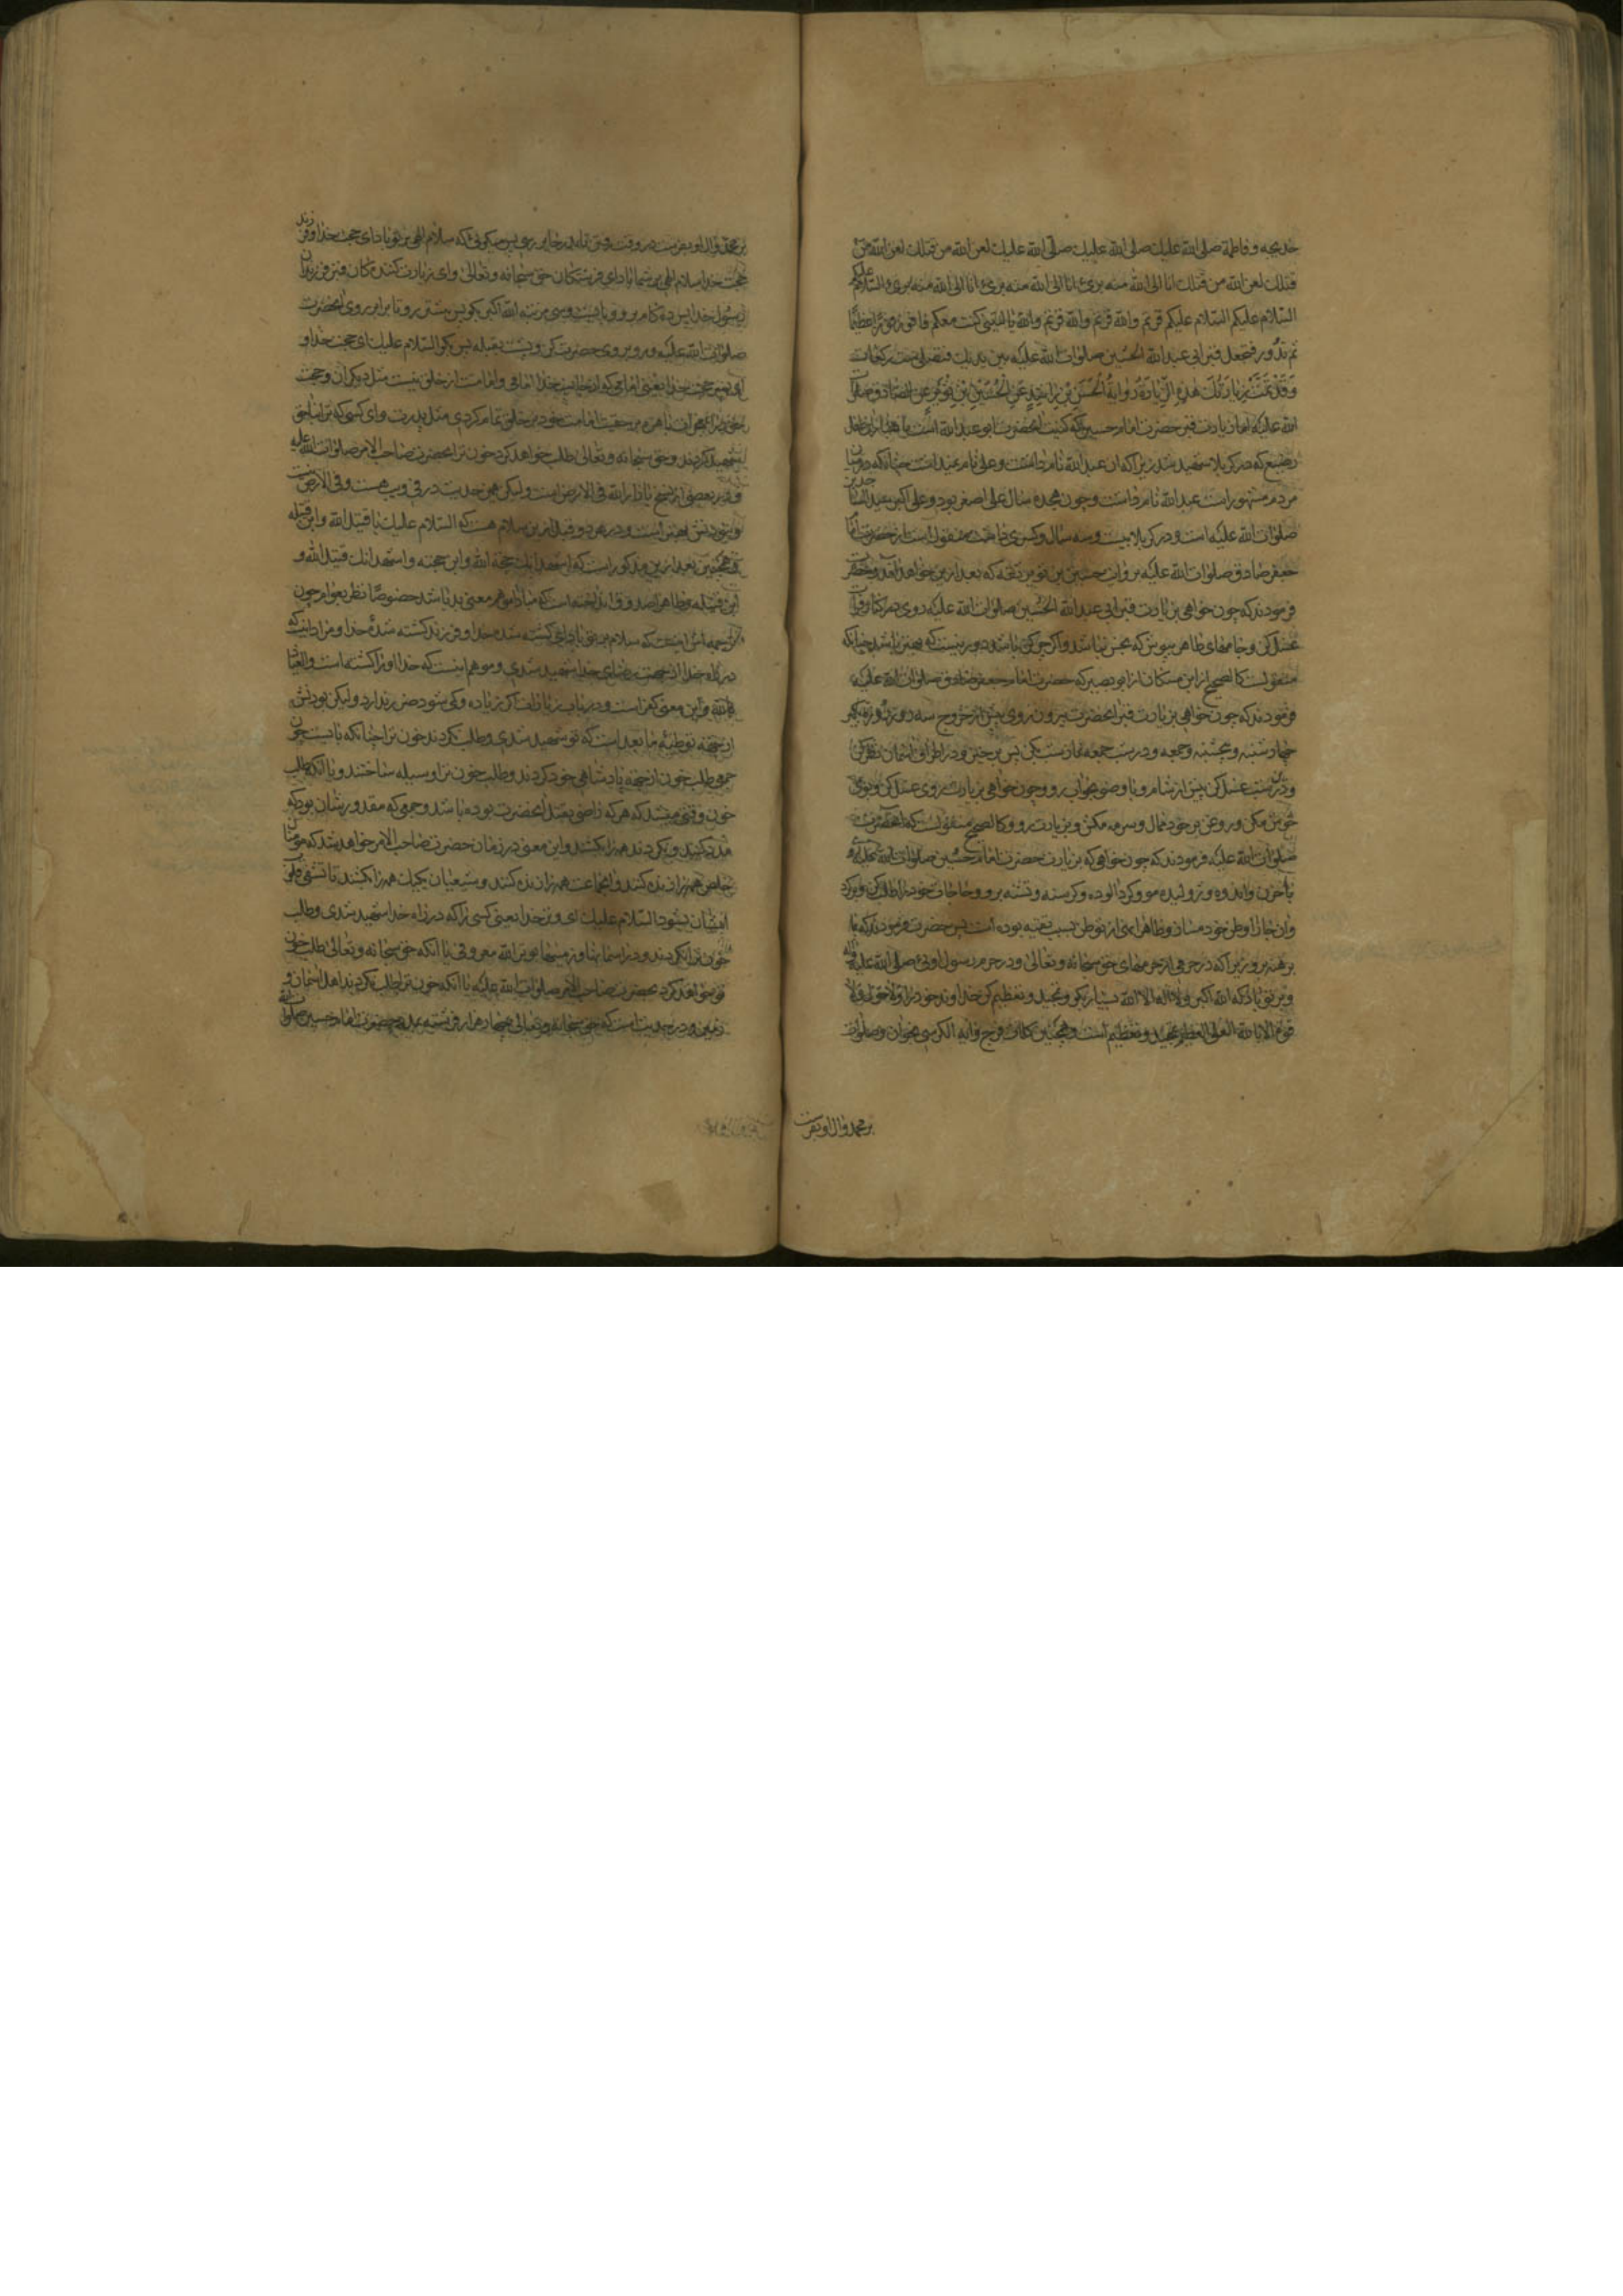 خدیجه و فاطمة صلی الله علیك صلی الله علیك صلی الله علیك لعن الله من قتلك لعن الله من
قتلك لعن الله من قتلك انا الی الله منه بریٔ انا الی الله منه بریٔ انا الی الله منه بریٔ و السلام علیکم
السلام علیکم السلام علیکم فزتم والله فزتم والله فزتم والله یا لیتنی کنت معکم فافوز فوزا عظیما
ثم تدور فتجعل قبر ابی عبد الله الحسین صلوات الله علیه بین یدیك فتصلی ست رکعات
وقد تمت زیارتك هذه الزیارة روایة الحسن بن راشد عن الحسین بن ثویر عن الصادق صلوات
الله علیه اما زیارت قبر حضرت امام حسین که کنیت انحضرت ابو عبد الله است
رضیع که در کربلا شهید شد زیرا که ان عبد الله نام داشت و علی نام
مردم مشهور است عبد الله نام داشت و چون هجده سال علی اصغر بود و علی اکبر
صلوات الله علیه است و در کربلا بیست و سه سال و کسری داشت منقول است از حضرت امام
جعفر صادق صلوات الله علیه بروایت حسین بن ثویر ثقه که بعد ازین خواهد امد
فرمودند که چون خواهی بزیارت قبر ابی عبد الله الحسین صلوات الله علیه روی در کنار فرات
غسل کن و جامهای طاهر بپوش که نجس نباشد و اکر چرکن باشد دور نیست که بهتر باشد چنانکه
منقولست کالصحیح از ابن مسکان از ابو بصیر که حضرت امام جعفر صادق صلوات الله علیه
فرمودند که چون خواهی بزیارت قبر انحضرت بیرون روی پیش از خروج سه روز روزه بکیر
چهارشنبه و پنجشنبه و جمعه و در شب جمعه نماز شب بکن پس برخیز و در اطراف اسمان نظر کن
و در ان شب غسل کن پیش از شام و با وضو بخواب رو و چون خواهی بزیارت روی غسل کن و بوی
خوش مکن و روغن بر خود ممال و سرمه مکش و بزیارت رو و کالصحیح منقولست که انحضرت
صلوات الله علیه فرمودند که چون خواهی که بزیارت حضرت امام حسین صلوات الله علیه روی
با حزن و اندوه و ژولیده مو و کرد الوده و کرسنه و تشنه برو و حاجات خود را طلب کن و برکرد
و ان جا را وطن خود مساز و ظاهرا نهی از توطن بسبب تقیه بوده است پس حضرت فرمودند که پا
برهنه برو زیرا که در حرمی از حرمهای حق سبحانه و تعالی و در حرم رسول اوئی صلی الله علیه و اله
و بر تو باد که الله اکبر و لا اله الا الله بسیار بکو و تمجید و تعظیم کن خداوند خود را و لا حول و لا
قوة الا بالله العلی العظیم تمجید و تعظیم است و همچنین کلمات فرج و ایة الکرسی بخوان و صلوات
بر محمد و ال او بفرست
بر محمد و ال او بفرست در وقت رفتن تا بدر حایر رسی پس میکوئی که سلام الهی بر تو باد ای حجت خدا و فرزند
حجت خدا سلام الهی بر شما باد ای فرشتکان حق سبحانه و تعالی و ای زیارت کنندکان قبر فرزند
رسول خدا پس ده کام برو و بایست و سی مرتبه الله اکبر بکو پس پیشتر رو تا برابر روی انحضرت
صلوات الله علیه و رو بروی حضرت کن و پشت بقبله پس بکو السلام علیك ای حجت خدا و
شهید کردند و حق سبحانه و تعالی طلب خواهد کرد خون ترا بحضرت صاحب الامر صلوات الله علیه
و در بعضی از نسخ یا ثار الله فی الارض است و لیکن همین حدیث در فی و یب هست و فی الارض
و نبودنش بهتر است و در هر دو قبل ازین سلام هست که السلام علیك یا قتیل الله و ابن قتیله
و همچنین بعد ازین مذکور است که اشهد انك حجة الله و ابن حجته و اشهد انك قتیل الله و
ابن قتیله و ظاهرا صدوق انداخته است که مبادا موهم معنی بد باشد خصوصا نظر بعوام چون
ترجمه اش اینست که سلام بر تو باد ای کشته شده خدا و فرزند کشته شدۀ خدا و مراد اینست که
در راه خدا از جهت رضای خدا شهید شدی و موهم اینست که خدا او را کشته است و العیاذ
بالله و این معنی کفر است
از جهة توطئه ما بعد است که تو شهید شدی و طلب نکردند خون ترا چنانکه بایست چون
جمعی طلب خون از جهة پادشاهی خود کردند و طلب خون ترا وسیله ساختند و با انکه طلب
خون وقتی میشد که هر که راضی بقتل انحضرت بوده باشد و جمعی که مقدورشان بود که
مدد کنند و نکردند همه را بکشند و این معنی در زمان حضرت صاحب الامر خواهد شد که مومنان
خالص همه را زنده کنند و انجماعت همه را زنده کنند و شیعیان یکیك همه را بکشند تا تشفی قلوب
ایشان بشود السلام علیك ای وتر خدا یعنی کسی را که در راه خدا شهید شدی و طلب
خون ترا نکردند و در اسمانها و زمینها موتر الله معروفی با انکه حق سبحانه و تعالی طلب خون
تو خواهد کرد بحضرت صاحب الامر صلوات الله علیه با انکه خون ترا طلب نکردند اهل اسمان و
زمین و در حدیث است که حق سبحانه و تعالی چهار هزار فرشته بمدد حضرت امام حسین صلوات الله